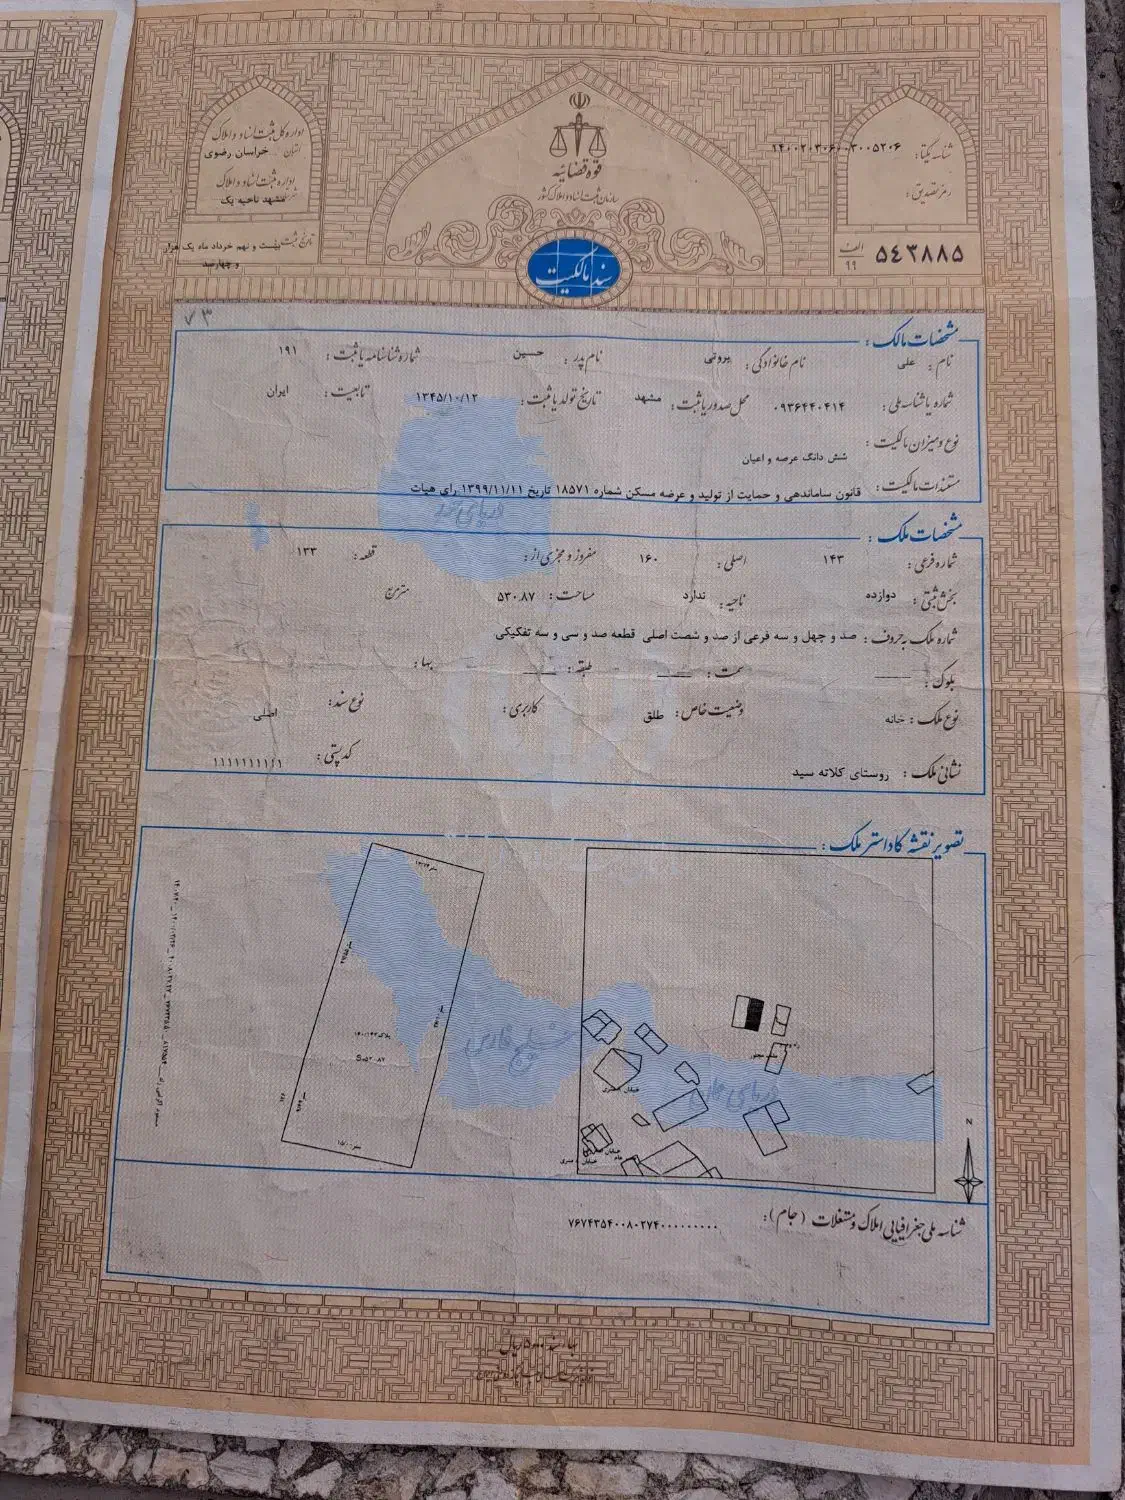 اداره کل ثبت اسناد و املاک
استان خراسان رضوی
اداره ثبت اسناد و املاک
مشهد ناحیه یک
تاریخ ثبت: بیست و نهم خرداد ماه یک هزار
و چهارصد
قوه قضائیه
سازمان ثبت اسناد و املاک کشور
سند مالکیت
شناسه یکتا:
رمز تصدیق:
۵۴۳۸۸۵ الف ۹۹
۷۳
مشخصات مالک:
نام: علی نام خانوادگی: نام پدر: حسین شماره شناسنامه یا ثبت: ۱۹۱
شماره یا شناسه ملی: ۰۹۳۶۴۴۰۴۱۴ محل صدور یا ثبت: مشهد تاریخ تولد یا ثبت: ۱۳۴۵/۱۰/۱۲ تابعیت: ایران
نوع و میزان مالکیت: شش دانگ عرصه و اعیان
مستندات مالکیت: قانون ساماندهی و حمایت از تولید و عرضه مسکن شماره ۱۸۵۷۱ تاریخ ۱۳۹۹/۱۱/۱۱ رای هیات
مشخصات ملک:
شماره فرعی: ۱۴۳ اصلی: ۱۶۰ مفروز و مجزی از: قطعه: ۱۳۳
بخش ثبتی: دوازده ناحیه: ندارد مساحت: ۵۳۰.۸۷ مترمربع
شماره ملک به حروف: صد و چهل و سه فرعی از صد و شصت اصلی قطعه صد و سی و سه تفکیکی
بلوک: سمت: طبقه: بها:
نوع ملک: خانه وضعیت خاص: طلق کاربری: نوع سند: اصلی
نشانی ملک: روستای کلاته سید کد پستی: ۱۱۱۱۱۱۱۱۱۱
تصویر نقشه کاداستر ملک:
دریای خزر
خلیج فارس
دریای عمان
N
شناسه ملی جغرافیایی املاک و مستغلات (جام):